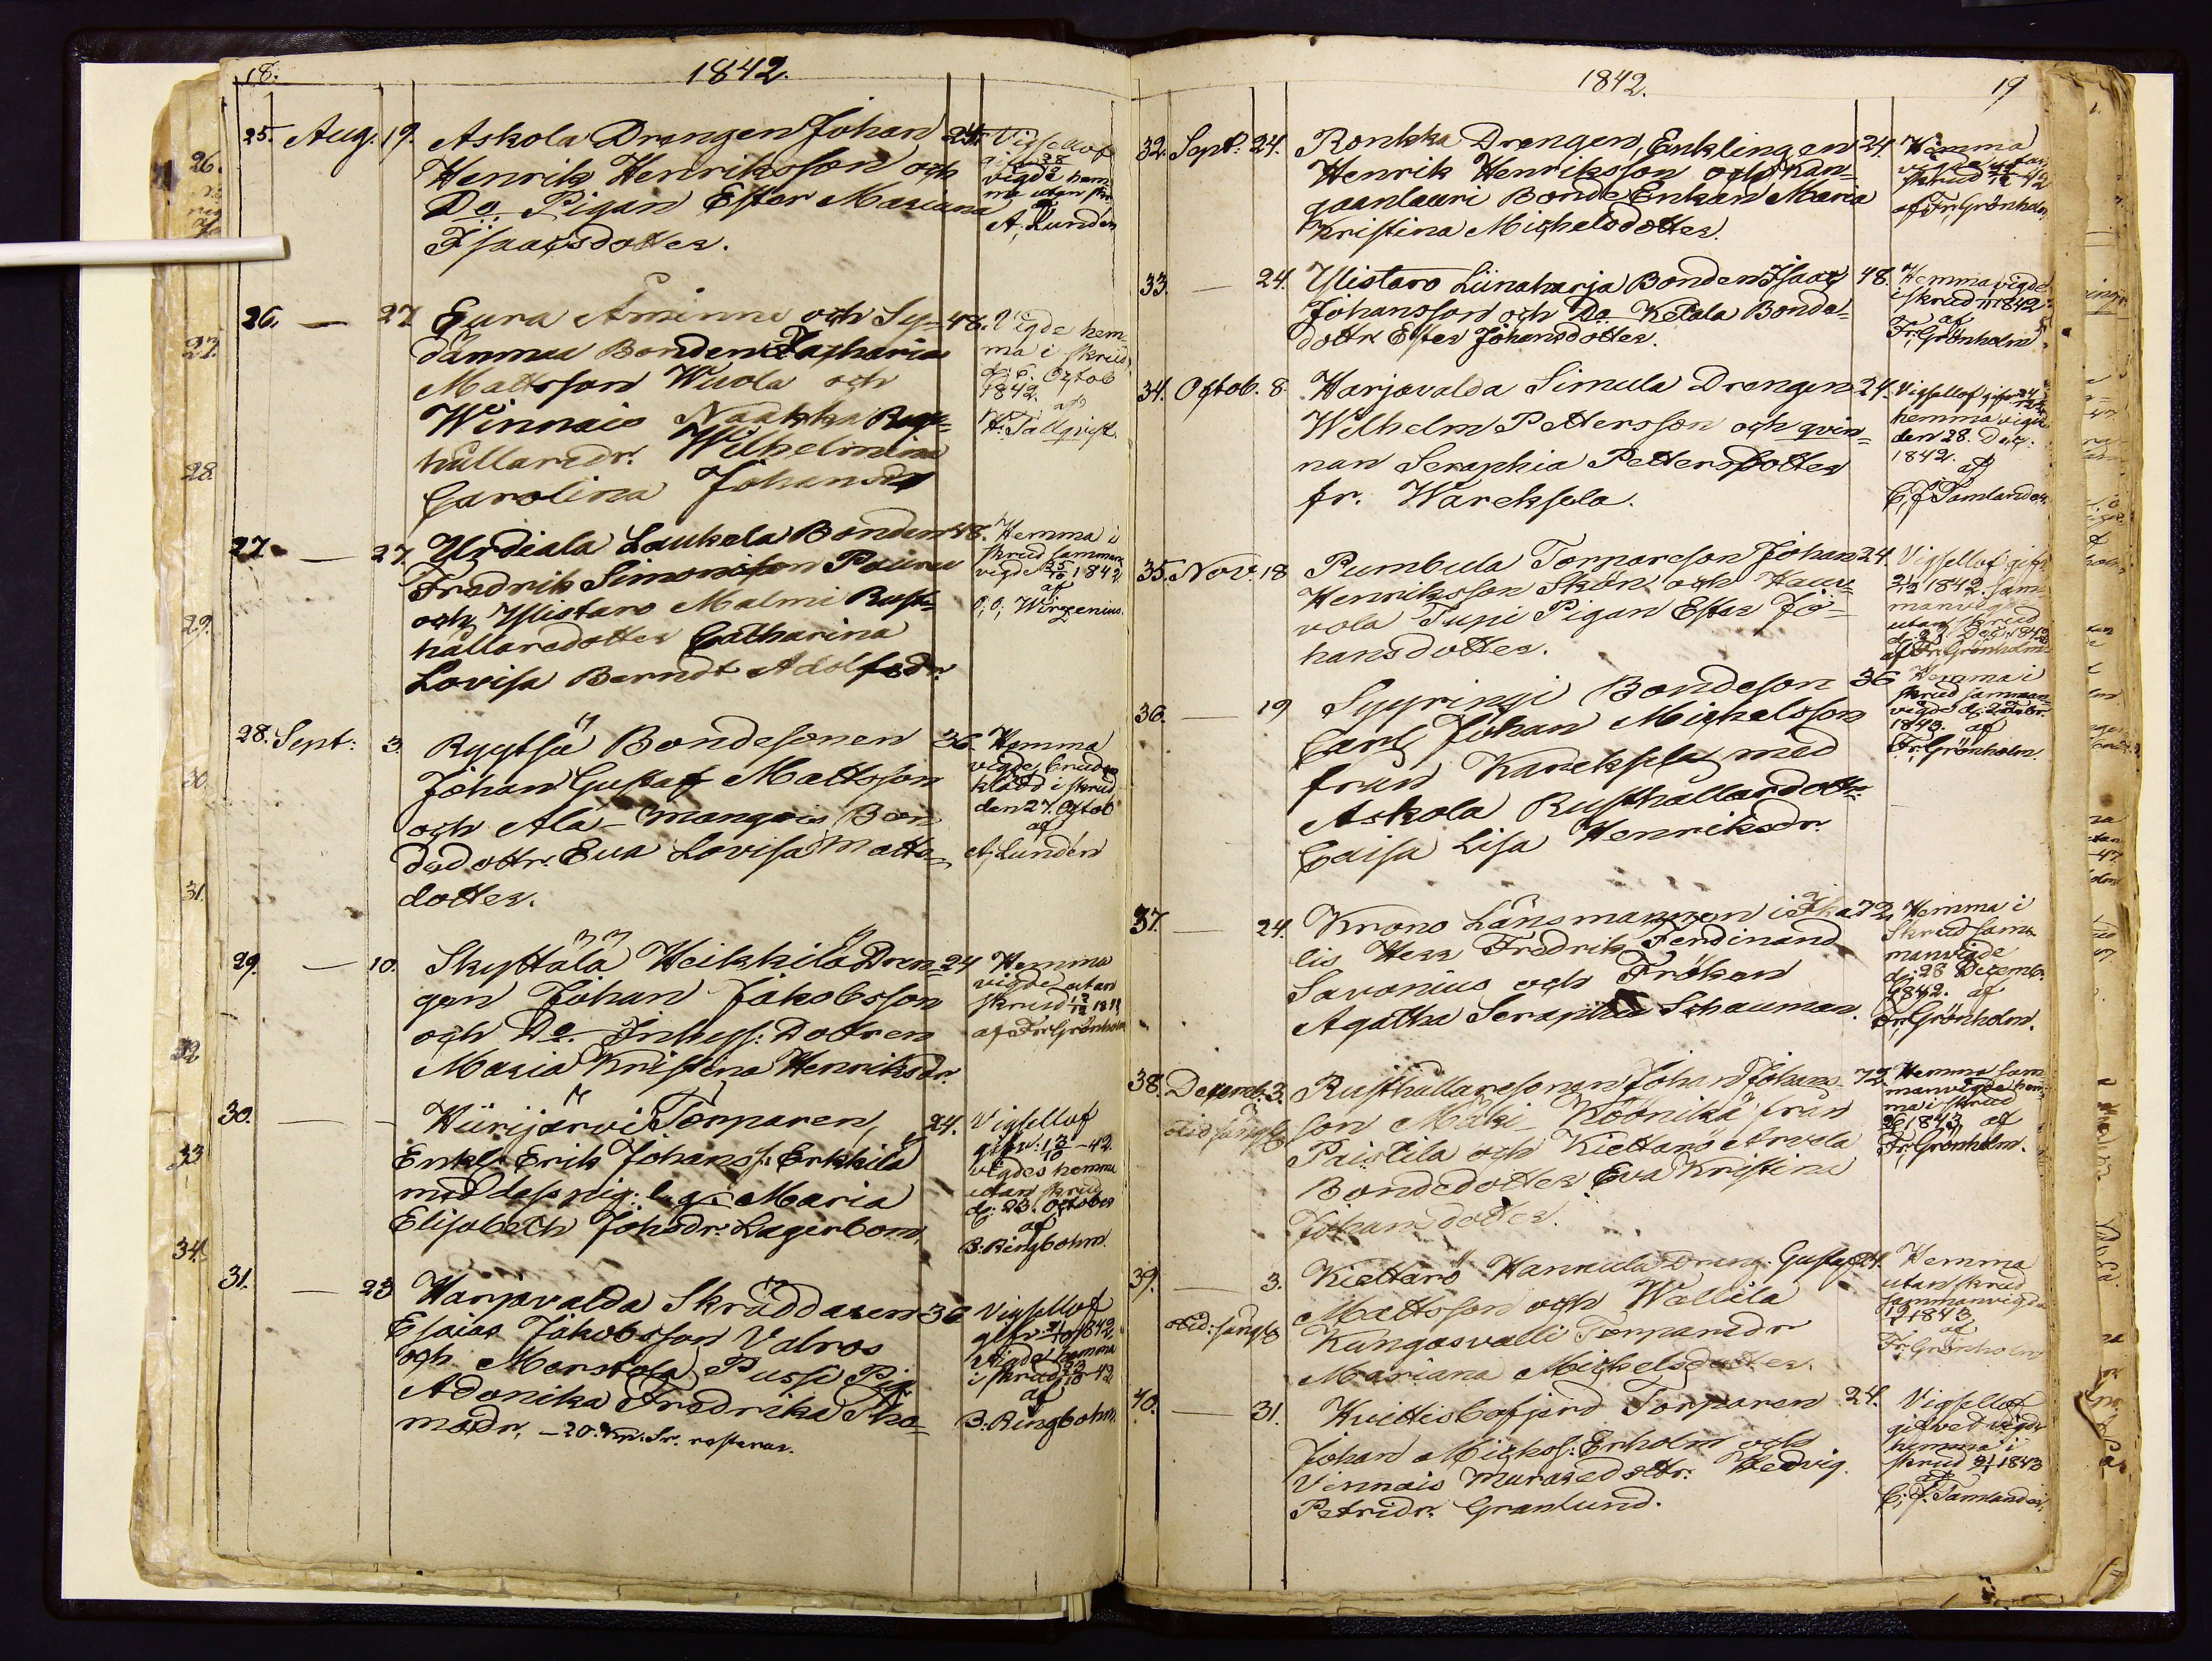 18.
1842.
25. Aug. 19. Askola Drengen Johan 24.
Henrik Henriksson och
Do Pigan Ester Mariana
Isaacsdotter.
Vigsellof
vigde hem-
ma utan skr.
A. Lundén
26. — 27 Eura Aminne och Sy-
dänmaa Bonden Zacharias
Mattsson Wuola och
Winnais Naakka Rust-
hållaredr. Wilhelmina
Carolina Johansdr
48. Vigde hem-
ma i skrud
d. 6. Octob
1842. af
H. Tallqvist.
27. — 27. Yrdiala Laukola Bonden 48.
Fredrik Simonsson Pauru
och Ylistaro Malmi Rust-
hållaredotter Catharina
Lovisa Berndt Adolfsdr.
Hemma i
skrud samman
vigde 25/10 1842
af
O. O. Wirzenius.
28. Sept: 3. Rygtsä Bondesonen 36.
Johan Gustaf Mattsson
och Ala-mangois Bon
dedottr. Eva Lovisa Matts-
dotter.
Hemma
vigde, brud
klädd i skrud
den 27. Octob
af
A. Lundén
29. — 10. Skyttälä Heikkilä Dren- 24
gen Johan Jakobsson
och Do Inhyss: Dotren
Maria Kristina Henriksdr.
Hemma
vigde utan
skrud
af Fr. Grönholm
30. — — Hiirijärvi Torparen, 24.
Enkl. Erik Johanss: Erkkilä
med dess pig: Maria
Elisabeth Johsdr: Lagerbom
Vigsellof
gifv: 13/10 -42.
vigdes hemma
utan skrud
d: 23. October
af
B: Ringbohm.
31. — 23 Harjavalda Skräddaren 36
Esaias Jakobsson Valros
och Merstola Pussi Pig.
Adonika Fredrika Tho-
masdr, —20. kop. Sr. resterar.
Vigsellof
gifv. 1842,
Vigde hemma
i skrud
af
B: Ringbohm.
1842.
19
32. Sept: 24. Ronkka Drengen, Enklingen 24.
Henrik Henriksson och Kan-
gaanlauri Bonde Enkan Maria
Kristina Michelsdotter.
Hemma
vigde utan
skrud
af Fr. Grönholm
33. — 24. Ylistaro Liinaharja Bonden Isaac 48.
Johansson och Do Ketola Bonde-
dottr Ester Johansdotter.
Hemma vigde
i skrud 1842
af
Fr. Grönholm
34. Octob. 8 Harjavalda Simula Drengen 24.
Wilhelm Pettersson och qvin-
nan Seraphia Pettersdotter
fr. Wareksela.
Vigsellof gifv.
hemma vigde
den 28. Dec.
1842.
af
C. J. Tamlander
35. Nov. 18 Pumbula Torpareson Johan 24.
Henriksson Skön och Hau-
vola Tupi Pigan Ester Jo-
hansdotter.
Vigsellof gifv.
1842. sam
manvigde
utan skrud
d. 27 Dec: 1842
af Fr. Grönholm
36. — 19 Syyringi Bondeson 36
Carl Johan Michelsson
från Kareksela med
Askola Rusthållaredottr
Caisa Lisa Henriksdr.
Hemma i
skrud samman
vigde d: 22
1843. af
Fr. Grönholm.
37. — 24. Krono Länsmannen i Ika 72,
lis Herr Fredrik Ferdinand
Savonius och Fröken
Agatha Seraphia Schauman.
Hemma i
Skrud sam
manvigde
d: 28 Decemb.
1842. af
Fr. Grönholm.
38. Decemb: 3. Rusthållaresonen Johan Johans- 72.
son Mäki Köönikä från
Paistila och Kiettare Arvela
Bondedotter Eva Kristina
Johansdotter.
Hemma sam
manvigde hem
ma i skrud
1843, af
Fr. Grönholm.
39. — 3. Kiettare Hannula Dreng. Gustaf 24.
Mattsson och Wallila
Kangasvalli Torparedr
Mariana Michelsdotter.
Hemma
utan skrud
sammanvigda
1843
af
Fr Grönholm
40. — 31. Huittisbofjerd Torparen 24.
Johan Michels: Enholm och
Vinnais Muraredottr. Hedvig
Petridr. Granlund.
Vigsellof
gifvet vigde
hemma i
skrud 1843
af
C. J. Tamlander